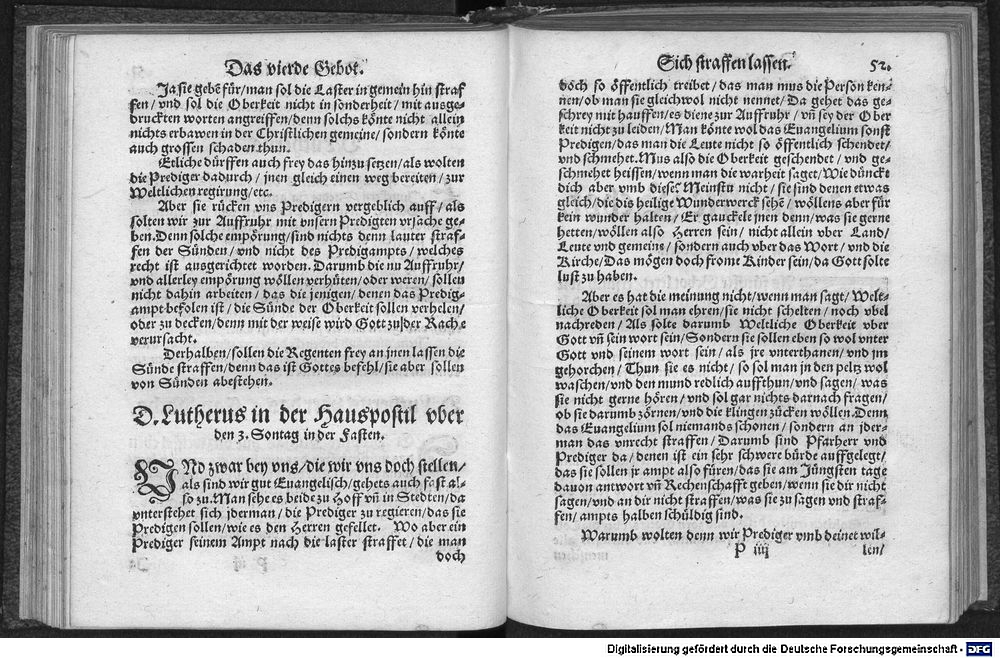 Das vierde Gebot.
Ja sie gebẽ für/man sol die Laster in gemein hin straf
fen/vnd sol die Oberkeit nicht in sonderheit/mit ausge-
druckten worten angreiffen/denn solchs könte nicht allein
nichts erbawen in der Christlichen gemeine/sondern könte
auch grossen schaden thun.
Etliche dürffen auch frey das hinzu setzen/als wolten
die Prediger dadurch/jnen gleich einen weg bereiten/zur
Weltlichen regirung/etc.
Aber sie rücken vns Predigern vergeblich auff/als
solten wir zur Auffruhr mit vnsern Predigten vrsache ge-
ben. Denn solche empörung/sind nichts denn lauter straf-
fen der Sünden/vnd nicht des Predigampts/welches
recht ist ausgerichtet worden. Darumb die nu Auffruhr/
vnd allerley empörung wöllen verhüten/oder weren/sollen
nicht dahin arbeiten/das die jenigen/denen das Predig-
ampt befolen ist/die Sünde der Oberkeit sollen verhelen/
oder zu decken/denn mit der weise wird Gott zu der Rache
verursacht.
Derhalben/sollen die Regenten frey an jnen lassen die
Sünde straffen/denn das ist Gottes befehl/sie aber sollen
von Sünden abestehen.
D. Lutherus in der Hauspostil vber
den 3. Sontag in der Fasten.
VNd zwar bey vns/die wir vns doch stellen/
als sind wir gut Euangelisch/gehets auch fast al-
so zu. Man sehe es beide zu Hoff vñ in Stedten/da
vnterstehet sich jderman/die Prediger zu regieren/das sie
Predigen sollen/wie es den Herren gefellet. Wo aber ein
Prediger seinem Ampt nach die laster straffet/die man
doch
Sich straffen lassen. 52.
doch so öffentlich treibet/das man mus die Person ken-
nen/ob man sie gleich wol nicht nennet/Da gehet das ge-
schrey mit hauffen/es diene zur Auffruhr/vñ sey der Ober
keit nicht zu leiden/Man könte wol das Euangelium sonst
Predigen/das man die Leute nicht so öffentlich schendet/
vnd schmehet. Mus also die Oberkeit geschendet/vnd ge-
schmehet heissen/wenn man die warheit saget/Wie dünckt
dich aber vmb diese? Meinstu nicht/sie sind denen etwas
gleich/die dis heilige Wunderwerck sehẽ/wöllens aber für
kein wunder halten/Er gauckele jnen denn/was sie gerne
hetten/wöllen also Herren sein/nicht allein vber Land/
Leute vnd gemeine/sondern auch vber das Wort/vnd die
Kirche/Das mögen doch frome Kinder sein/da Gott solte
lust zu haben.
Aber es hat die meinung nicht/wenn man sagt/Welt-
liche Oberkeit sol man ehren/sie nicht schelten/noch vbel
nachreden/Als solte darumb Weltliche Oberkeit vber
Gott vñ sein wort sein/Sondern sie sollen eben so wol vnter
Gott vnd seinem wort sein/als jre vnterthanen/vnd jm
gehorchen/Thun sie es nicht/so sol man jn den peltz wol
waschen/vnd den mund redlich auffthun/vnd sagen/was
sie nicht gerne hören/vnd sol gar nichts darnach fragen/
ob sie darumb zörnen/vnd die klingen zücken wöllen. Denn
das Euangelium sol niemands schonen/sondern an jder-
man das vnrecht straffen/Darumb sind Pfarherr vnd
Prediger da/denen ist ein sehr schwere bürde auffgelegt/
das sie sollen jr ampt also füren/das sie am Jüngsten tage
dauon antwort vñ Rechenschafft geben/wenn sie dir nicht
sagen/vnd an dir nicht straffen/was sie zu sagen vnd straf-
fen/ampts halben schüldig sind.
Warumb wolten denn wir Prediger vmb deinet wil-
P iiij len/
Digitalisierung gefördert durch die Deutsche Forschungsgemeinschaft - DFG